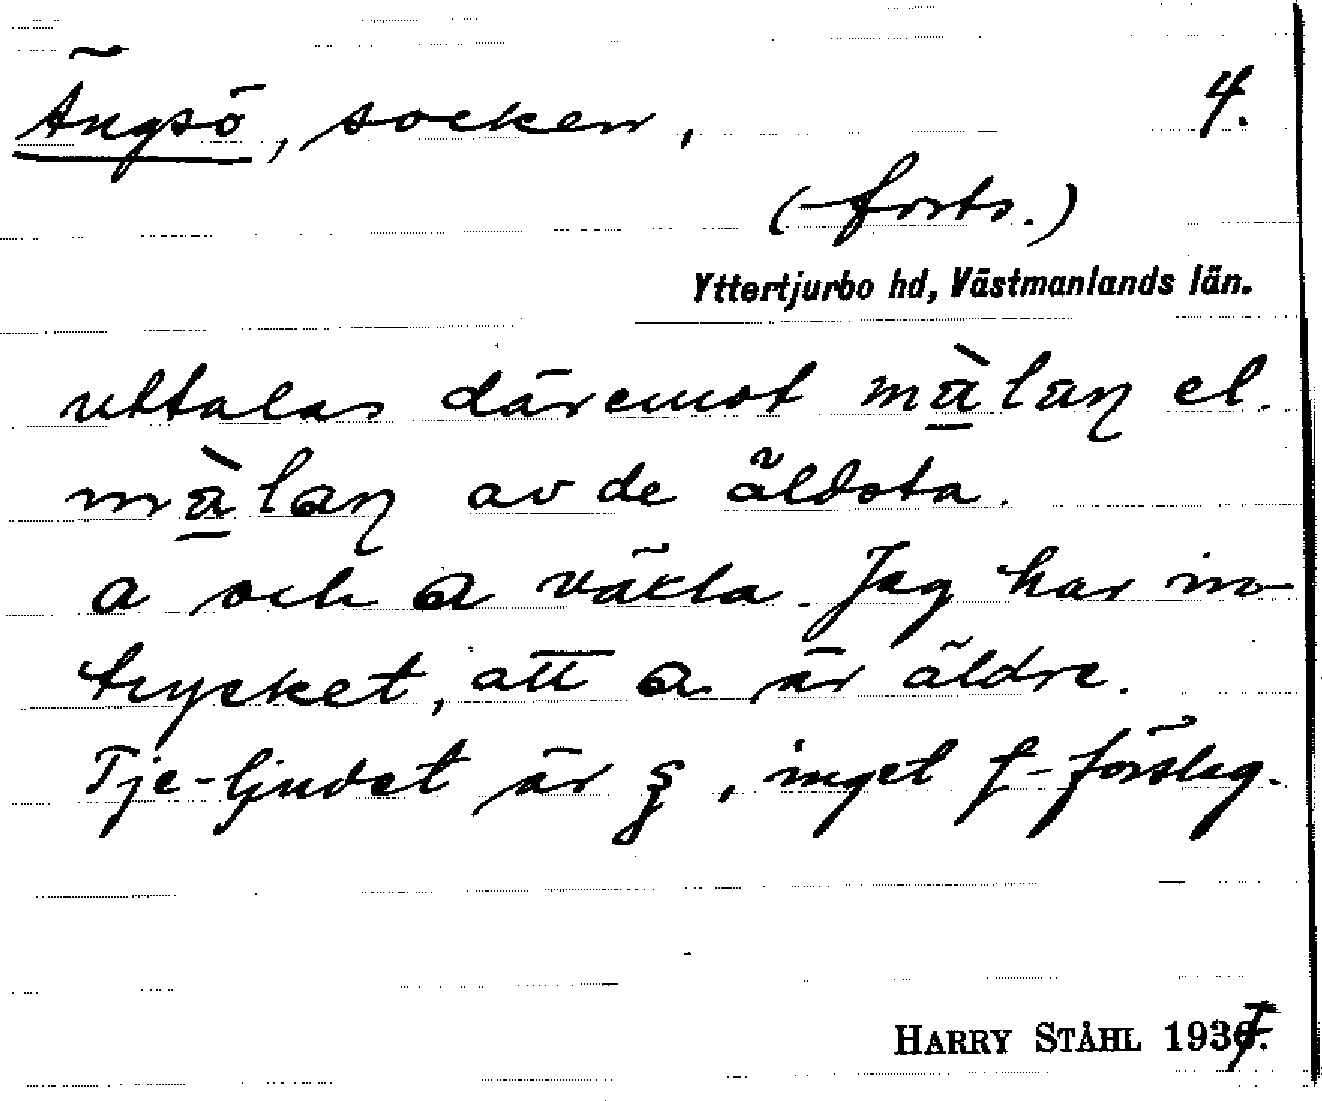 Ängsö, socken, 4.
(forts.)
Yttertjurbo hd, Västmanlands län.
uttalas däremot mà̱laɳ el.
mà̱lɑɳ av de äldsta.
a och ɑ växla. Jag har in-
trycket, att ɑ är äldre.
Tje-ljudet är ʂ, inget f-förslag.
HARRY STÅHL 1937.